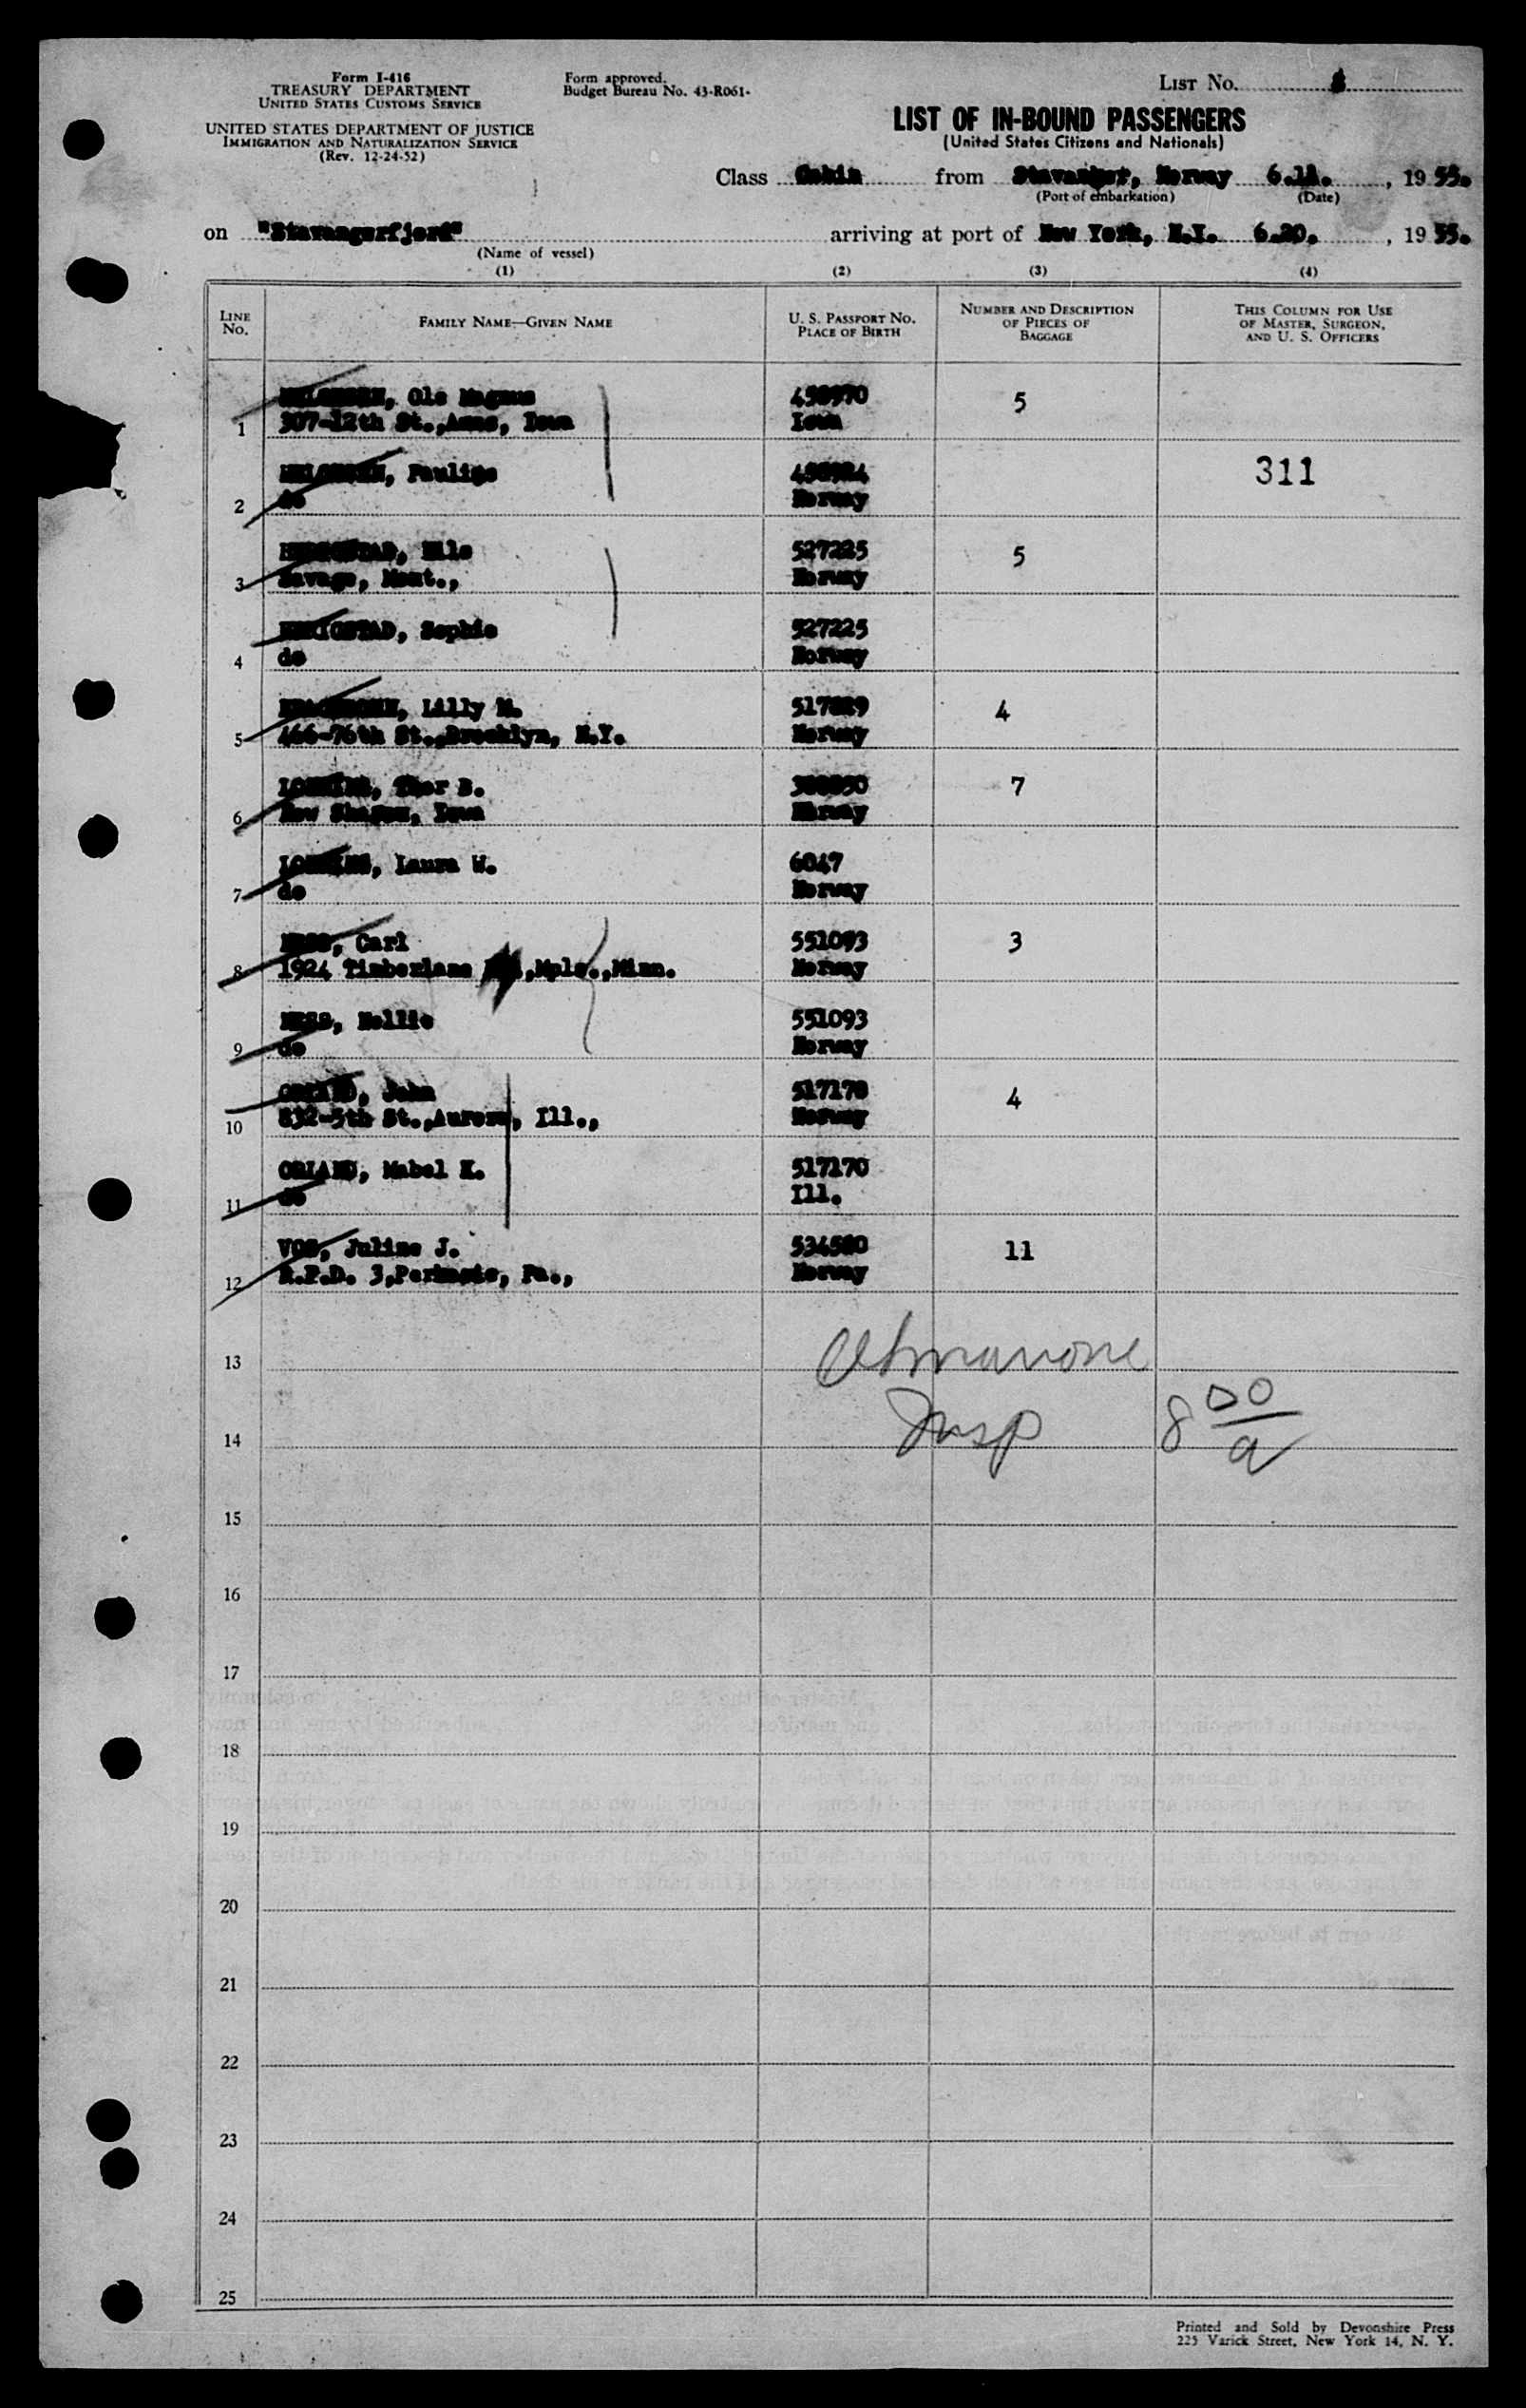 Form I-416
TREASURY DEPARTMENT
UNITED STATES CUSTOMS SERVICE
UNITED STATES DEPARTMENT OF JUSTICE
IMMIGRATION AND NATURALIZATION SERVICE
(Rev. 12-24-52)
Form approved.
Budget Bureau No. 43-R061-
LIST No.
LIST OF IN-BOUND PASSENGERS
(United States Citizens and Nationals)
Class Cabin from Stavanger, Norway 6.11., 1955.
(Port of embarkation) (Date)
on "Stavangerfjord" arriving at port of New York, N.Y. 6.20., 1955.
(Name of vessel)
(1) (2) (3) (4)
LINE NO.
FAMILY NAME—GIVEN NAME
U. S. PASSPORT NO.
PLACE OF BIRTH
NUMBER AND DESCRIPTION
OF PIECES OF
BAGGAGE
THIS COLUMN FOR USE
OF MASTER, SURGEON,
AND U. S. OFFICERS
Ole Magnus 5
1 307-12th St.,Ames, Iowa Iowa
Pauline 311
2 do Norway
Nils 527225 5
3 Savage, Mont., Norway
Sophie 527225
4 do Norway
Lilly M. 4
5 466-76th St.,Brooklyn, N.Y. Norway
Thor B. 7
6 New Sharon, Iowa Norway
Laura W. 6047
7 do Norway
NESS, Carl 551093 3
8 1924 Timberlane ,Mpls.,Minn. Norway
NESS, Nellie 551093
9 do Norway
ORLAND, John 517170 4
10 832-5th St.,Aurora, Ill., Norway
ORLAND, Mabel K. 517170
11 do Ill.
VOS, Juline J. 11
12 R.F.D. 3,Perkasie, Pa., Norway
13
14 Insp 8
15
16
17
18
19
20
21
22
23
24
25
Printed and Sold by Devonshire Press
225 Varick Street, New York 14, N. Y.